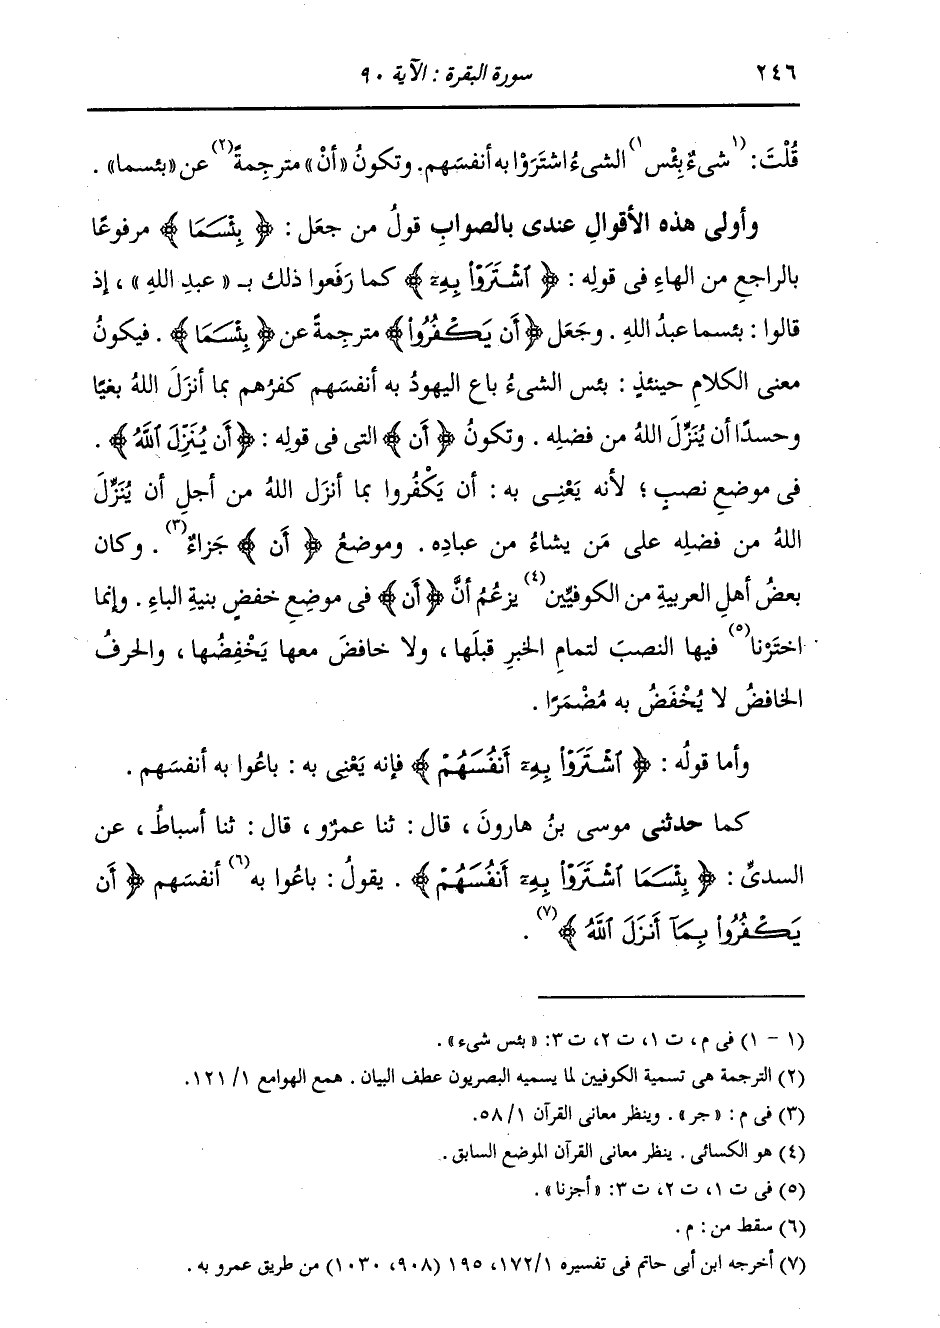 ٢٤٦ سورة البقرة : الآية ٩٠
قُلْتَ : (١شىءٌ بِئْس١) الشىءُ اشتَرَوْا به أنفسَهم. وتكونُ «أنْ» مترجِمةً(٢) عن «بئسما» .
وأولى هذه الأقوالِ عندى بالصوابِ قولُ من جعَل : ﴿ بِئْسَمَا ﴾ مرفوعًا
بالراجعِ من الهاءِ فى قولِه : ﴿ ٱشْتَرَوْا۟ بِهِۦٓ ﴾ كما رَفَعوا ذلك بـ « عبدِ اللهِ » ، إذ
قالوا : بئسما عبدُ اللهِ . وجَعَل ﴿ أَن يَكْفُرُوا۟ ﴾ مترجِمةً عن ﴿ بِئْسَمَا ﴾ . فيكونُ
معنى الكلامِ حينئذٍ : بئس الشىءُ باع اليهودُ به أنفسَهم كفرُهم بما أنزَلَ اللهُ بغيًا
وحسدًا أن يُنَزِّلَ اللهُ من فضلِه . وتكونُ ﴿ أَن ﴾ التى فى قولِه : ﴿ أَن يُنَزِّلَ ٱللَّهُ ﴾ .
فى موضعِ نصبٍ ؛ لأنه يَعْنِى به : أن يَكْفُروا بما أنزَل اللهُ من أجلِ أن يُنَزِّلَ
اللهُ من فضلِه على مَن يشاءُ من عبادِه . وموضعُ ﴿ أَن ﴾ جَزاءٌ(٣) . وكان
بعضُ أهلِ العربيةِ من الكوفيِّين(٤) يزعُمُ أنَّ ﴿ أَن ﴾ فى موضِعِ خفضٍ بنيةِ الباءِ . وإنما
اختَرْنا(٥) فيها النصبَ لتمامِ الخبرِ قبلَها ، ولا خافضَ معها يَخْفِضُها ، والحرفُ
الخافضُ لا يُخْفَضُ به مُضْمَرًا .
وأما قولُه : ﴿ ٱشْتَرَوْا۟ بِهِۦٓ أَنفُسَهُمْ ﴾ فإنه يَعْنِى به : باعُوا به أنفسَهم .
كما حدثنى موسى بنُ هارونَ ، قال : ثنا عمرٌو ، قال : ثنا أسباطُ ، عن
السدىِّ : ﴿ بِئْسَمَا ٱشْتَرَوْا۟ بِهِۦٓ أَنفُسَهُمْ ﴾ . يقولُ : باعُوا به(٦) أنفسَهم ﴿ أَن
يَكْفُرُوا۟ بِمَآ أَنزَلَ ٱللَّهُ ﴾(٧) .
(١ - ١) فى م، ت ١، ت ٢، ت ٣: « بئس شىء» .
(٢) الترجمة هى تسمية الكوفيين لما يسميه البصريون عطف البيان . همع الهوامع ١/ ١٢١.
(٣) فى م : «جر» . وينظر معانى القرآن ١/ ٥٨.
(٤) هو الكسائى . ينظر معانى القرآن الموضع السابق .
(٥) فى ت ١، ت ٢، ت ٣: «أجزنا» .
(٦) سقط من : م .
(٧) أخرجه ابن أبى حاتم فى تفسيره ١/ ١٧٢، ١٩٥ (٩٠٨، ١٠٣٠) من طريق عمرو به .